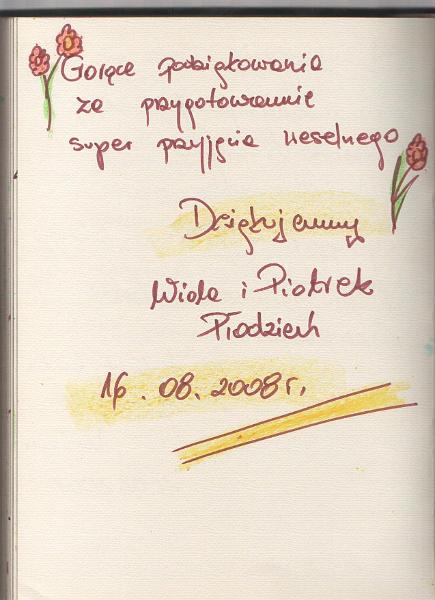 Gorące podziękowania
za przygotowanie
super przyjęcia weselnego
Dziękujemy
Wiola i Piotrek
Płodzień
16.08.2008r.